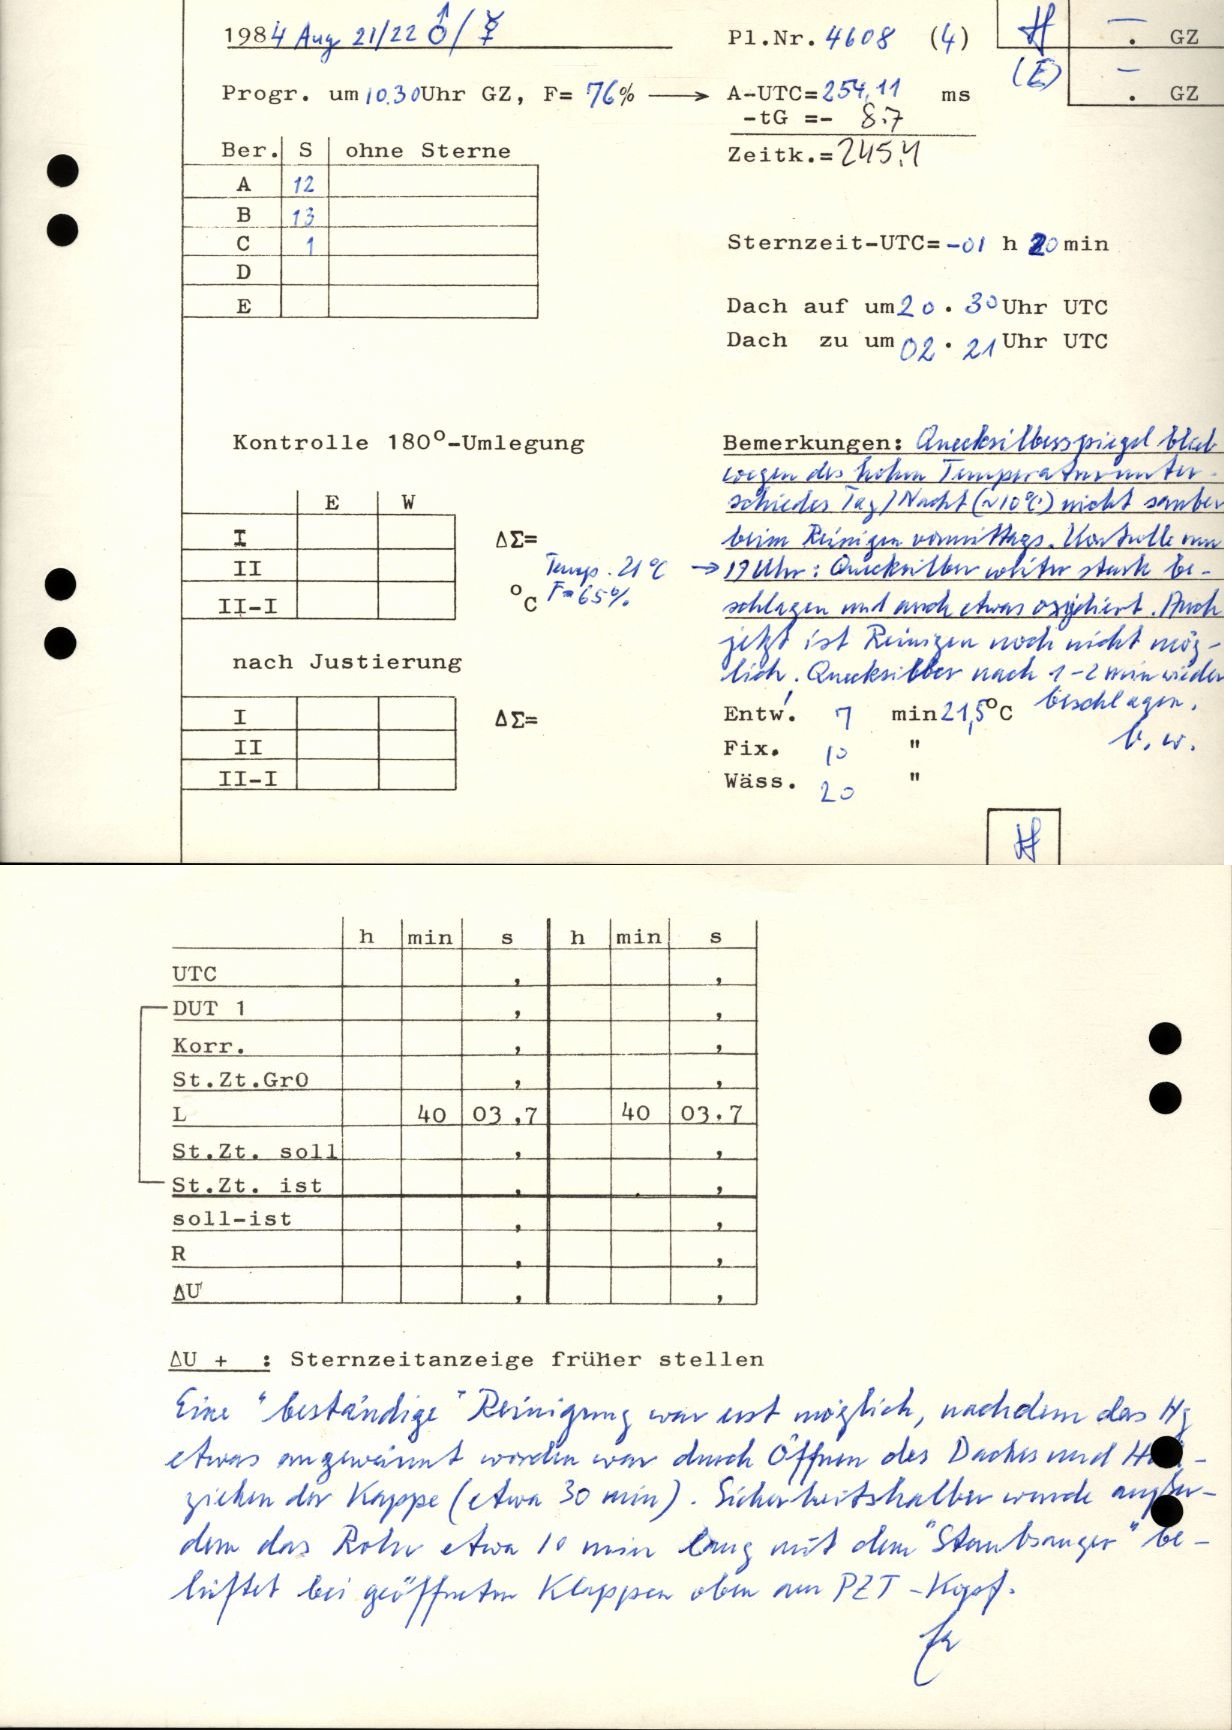 1984 Aug 21/22 ♂/☿
Pl.Nr. 4608 (4)
. GZ
(E)
. GZ
Progr. um 10.30 Uhr GZ, F= 76% → A-UTC= 254,11 ms
-tG =- 8.7
Zeitk.= 245,4
Ber. S ohne Sterne
A 12
B 13
C 1
D
E
Sternzeit-UTC= -01 h 20 min
Dach auf um 20 . 30 Uhr UTC
Dach zu um 02 . 21 Uhr UTC
Kontrolle 180°-Umlegung
E W
I
II
II-I
ΔΣ=
°C
Temp. 21°C →
F=65%
nach Justierung
I
II
II-I
ΔΣ=
Bemerkungen: Quecksilberspiegel blieb
wegen des hohen Temperaturunter-
schiedes Tag/Nacht (~10°C) nicht sauber
beim Reinigen vormittags. Kontrolle um
19 Uhr: Quecksilber weiter stark be-
schlagen und auch etwas oxydiert. Auch
jetzt ist Reinigen noch nicht mög-
lich. Quecksilber nach 1-2 min wieder
beschlagen.
b.w.
Entw. 7 min 21,5°C
Fix. 10 "
Wäss. 20 "
h min s h min s
UTC , ,
DUT 1 , ,
Korr. , ,
St.Zt.Gr0 , ,
L 40 03,7 40 03.7
St.Zt. soll , ,
St.Zt. ist , ,
soll-ist , ,
R , ,
ΔU , ,
ΔU + : Sternzeitanzeige früher stellen
Eine "beständige" Reinigung war erst möglich, nachdem das Hg
etwas angewärmt worden war durch Öffnen des Daches und
ziehen der Kappe (etwa 30 min). Sicherheitshalber wurde außer-
dem das Rohr etwa 10 min lang mit dem "Staubsauger" be-
lüftet bei geöffneten Klappen oben am PZT-Kopf.